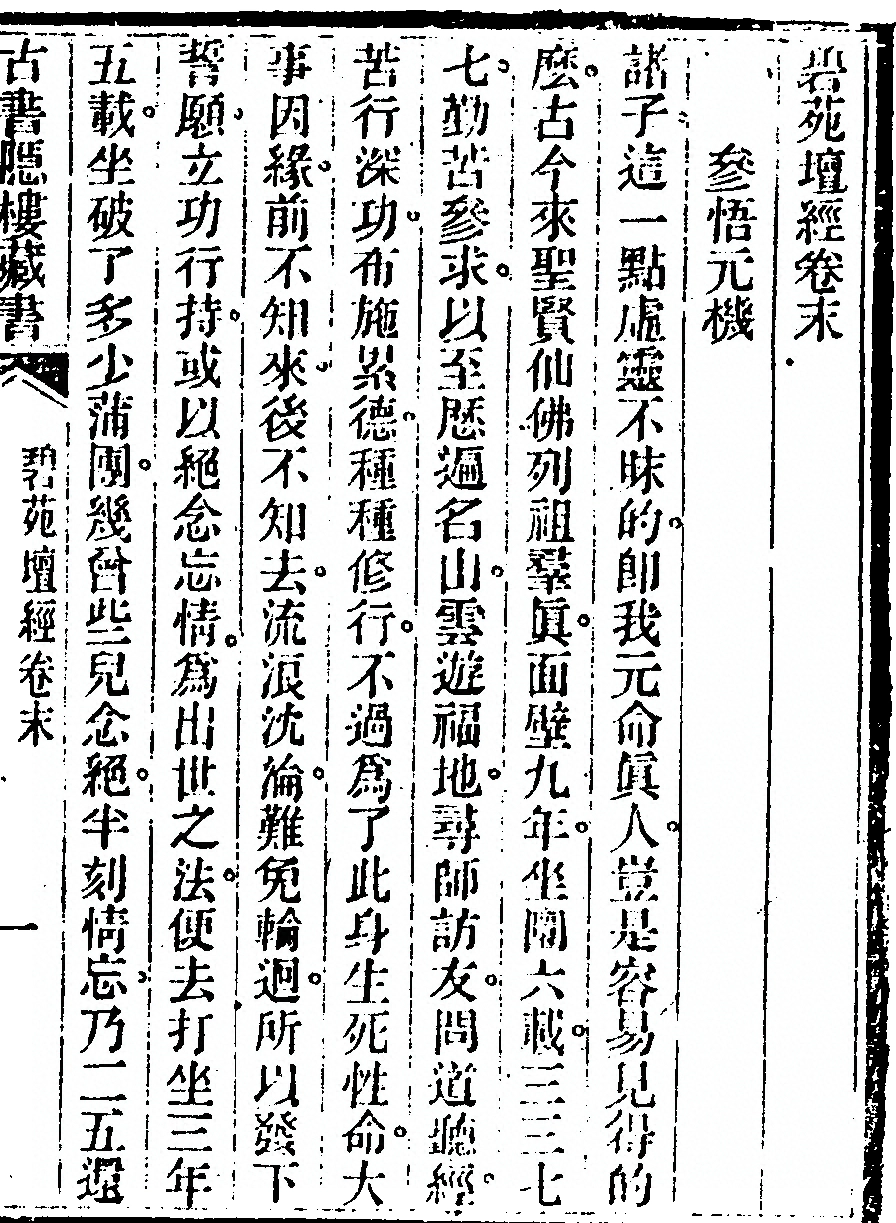 碧苑壇經卷末
參悟元機
諸子這一點虛靈不昧的。卽我元命眞人。豈是容易見得的
麽。古今來聖賢仙佛列祖羣眞。面壁九年。坐關六載。三三七
七。勤苦參求。以至歷遍名山。雲遊福地。尋師訪友。問道聽經。
苦行深功。布施累德。種種修行。不過爲了此身生死性命。大
事因緣。前不知來。後不知去。流浪沈淪。難免輪迴。所以發下
誓願。立功行持。或以絕念忘情。爲出世之法。便去打坐三年
五載。坐破了多少蒲團。幾曾些兒念絕。半刻情忘。乃二五還
古書隱樓藏書
碧苑壇經卷末
一